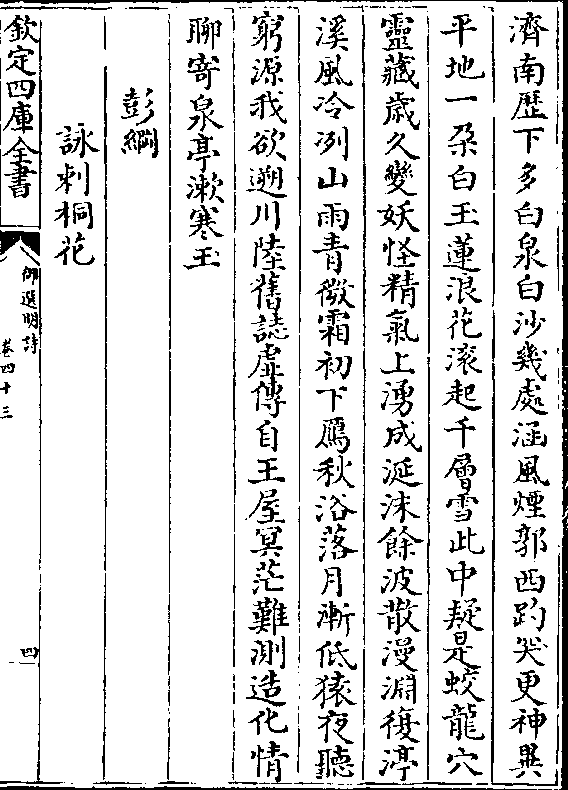 濟南歷下多白泉白沙幾處涵風煙郭西趵突更神異
平地一朶白玉蓮浪花滚起千層雪此中疑是蛟龍穴
靈藏歲久變妖怪精氣上湧成涎沫餘波散漫淵復渟
溪風冷冽山雨青微霜初下鴈秋浴落月漸低猿夜聽
窮源我欲遡川陸舊誌虛傳自王屋冥茫難測造化情
聊寄泉亭漱寒玉
彭綱
詠刺桐花
欽定四庫全書
御選明詩
卷四十三
四